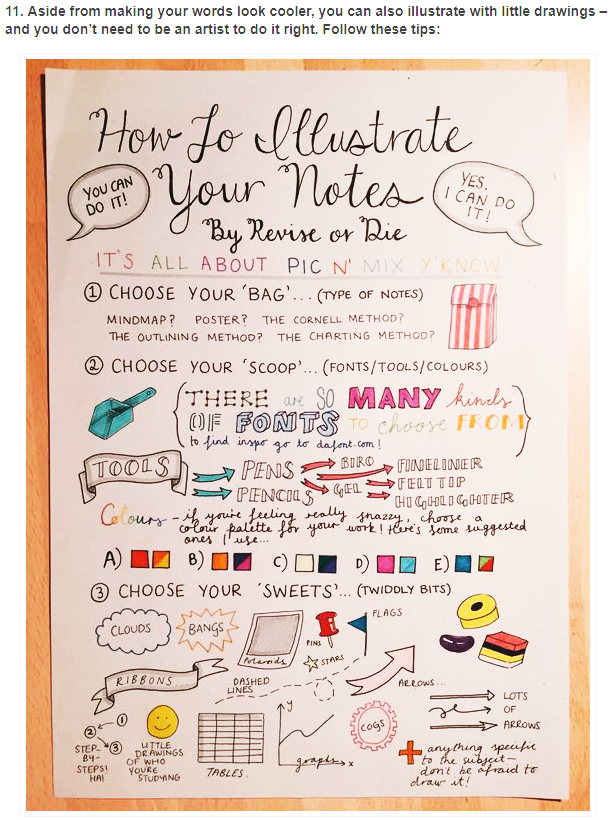 11. Aside from making your words look cooler, you can also illustrate with little drawings –
and you don't need to be an artist to do it right. Follow these tips:
How To Illustrate
YOU CAN
DO IT!
Your Notes
YES,
I CAN DO
IT!
By Revise or Die
IT'S ALL ABOUT PIC N' MIX Y'KNOW
① CHOOSE YOUR 'BAG'... (TYPE OF NOTES)
MINDMAP? POSTER? THE CORNELL METHOD?
THE OUTLINING METHOD? THE CHARTING METHOD?
② CHOOSE YOUR 'SCOOP'... (FONTS/TOOLS/COLOURS)
THERE are SO MANY kinds
OF FONTS TO choose FROM
to find inspo go to dafont.com!
TOOLS
PENS
BIRO
FINELINER
GEL
FELT TIP
PENCILS
HIGHLIGHTER
Colours - if you're feeling really snazzy, choose a
colour palette for your work! Here's some suggested
ones I use...
A) B) C) D) E)
③ CHOOSE YOUR 'SWEETS'... (TWIDDLY BITS)
CLOUDS
BANGS
Polaroids
PINS
FLAGS
STARS
RIBBONS
DASHED
LINES
ARROWS...
LOTS
OF
ARROWS
① ② ③
STEP-
BY-
STEPS!
HA!
LITTLE
DRAWINGS
OF WHO
YOU'RE
STUDYING
TABLES.
y
graphs
x
COGS
+ anything specific
to the subject-
don't be afraid to
draw it!